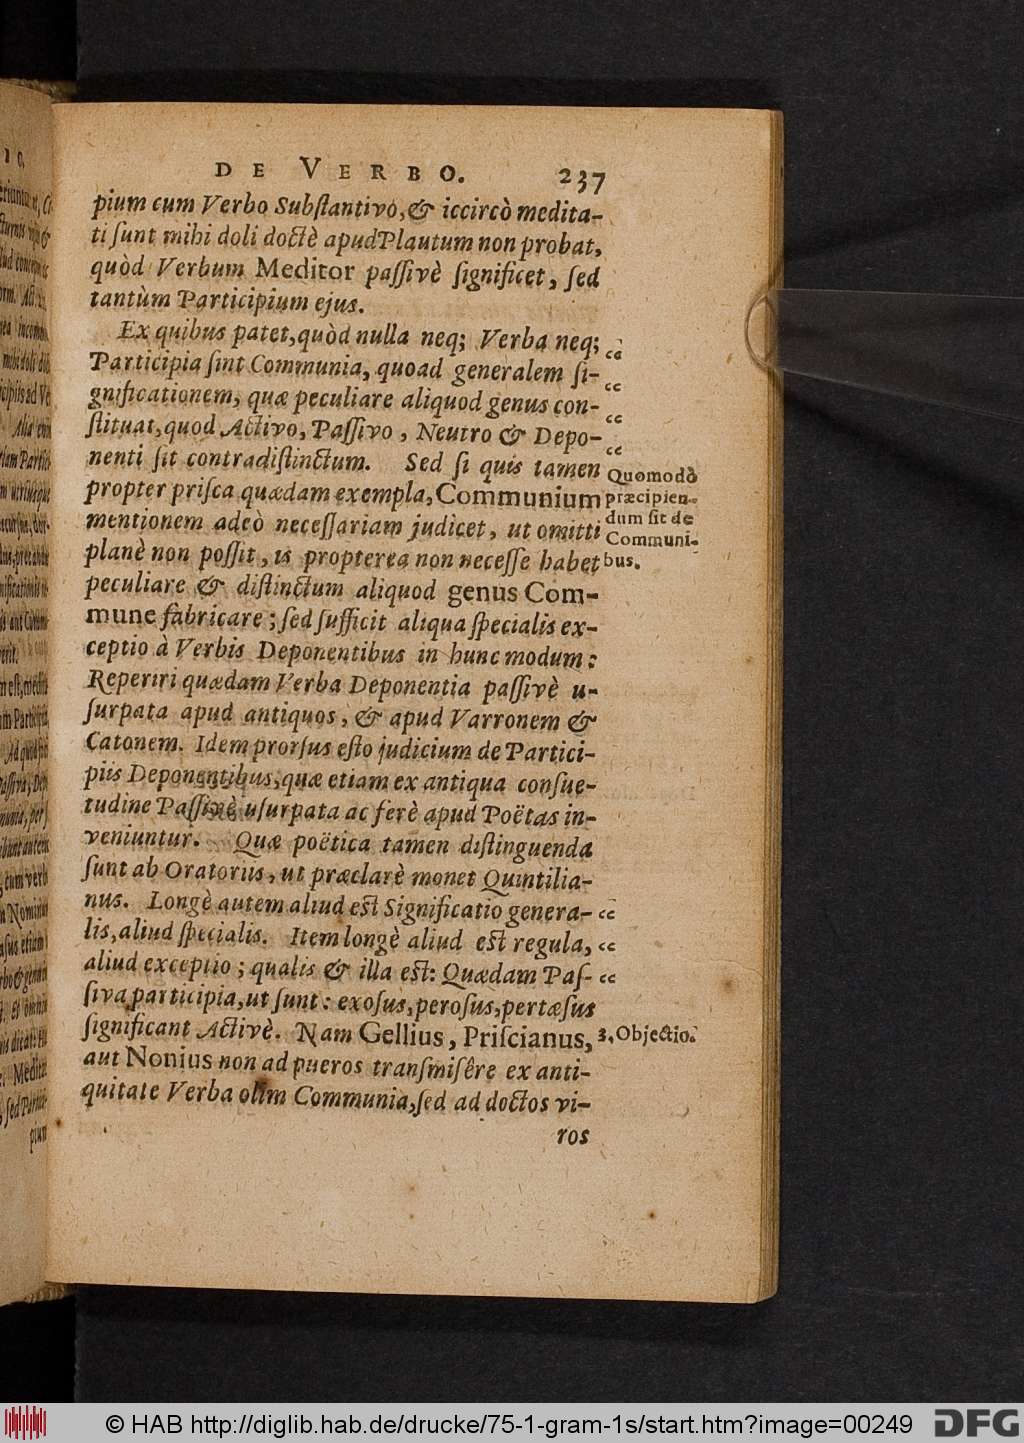 DE VERBO. 237
pium cum Verbo Substantivo, & iccircò medita-
ti sunt mihi doli doctè apud Plautum non probat,
quòd Verbum Meditor passivè significet, sed
tantùm Participium ejus.
Ex quibus patet, quòd nulla neq; Verba neq;
Participia sint Communia, quoad generalem si-
gnificationem, quæ peculiare aliquod genus con-
stituat, quod Activo, Passivo, Neutro & Depo-
nenti sit contradistinctum. Sed si quis tamen
propter prisca quædam exempla, Communium
mentionem adeò necessariam judicet, ut omitti
planè non possit, is propterea non necesse habet
peculiare & distinctum aliquod genus Com-
mune fabricare; sed sufficit aliqua specialis ex-
ceptio à Verbis Deponentibus in hunc modum:
Reperiri quædam Verba Deponentia passivè u-
surpata apud antiquos, & apud Varronem &
Catonem. Idem prorsus esto judicium de Partici-
piis Deponentibus, quæ etiam ex antiqua consue-
tudine Passivè usurpata ac ferè apud Poëtas in-
veniuntur. Quæ poëtica tamen distinguenda
sunt ab Oratoriis, ut præclarè monet Quintilia-
nus. Longè autem aliud est Significatio genera-
lis, aliud specialis. Item longè aliud est regula,
aliud exceptio; qualis & illa est: Quædam Pas-
siva participia, ut sunt: exosus, perosus, pertæsus
significant Activè. Nam Gellius, Priscianus,
aut Nonius non ad pueros transmisêre ex anti-
quitate Verba olim Communia, sed ad doctos vi-
ros
Quomodò
præcipien-
dum sit de
Communi-
bus.
3. Objectio.
© HAB http://diglib.hab.de/drucke/75-1-gram-1s/start.htm?image=00249
DFG